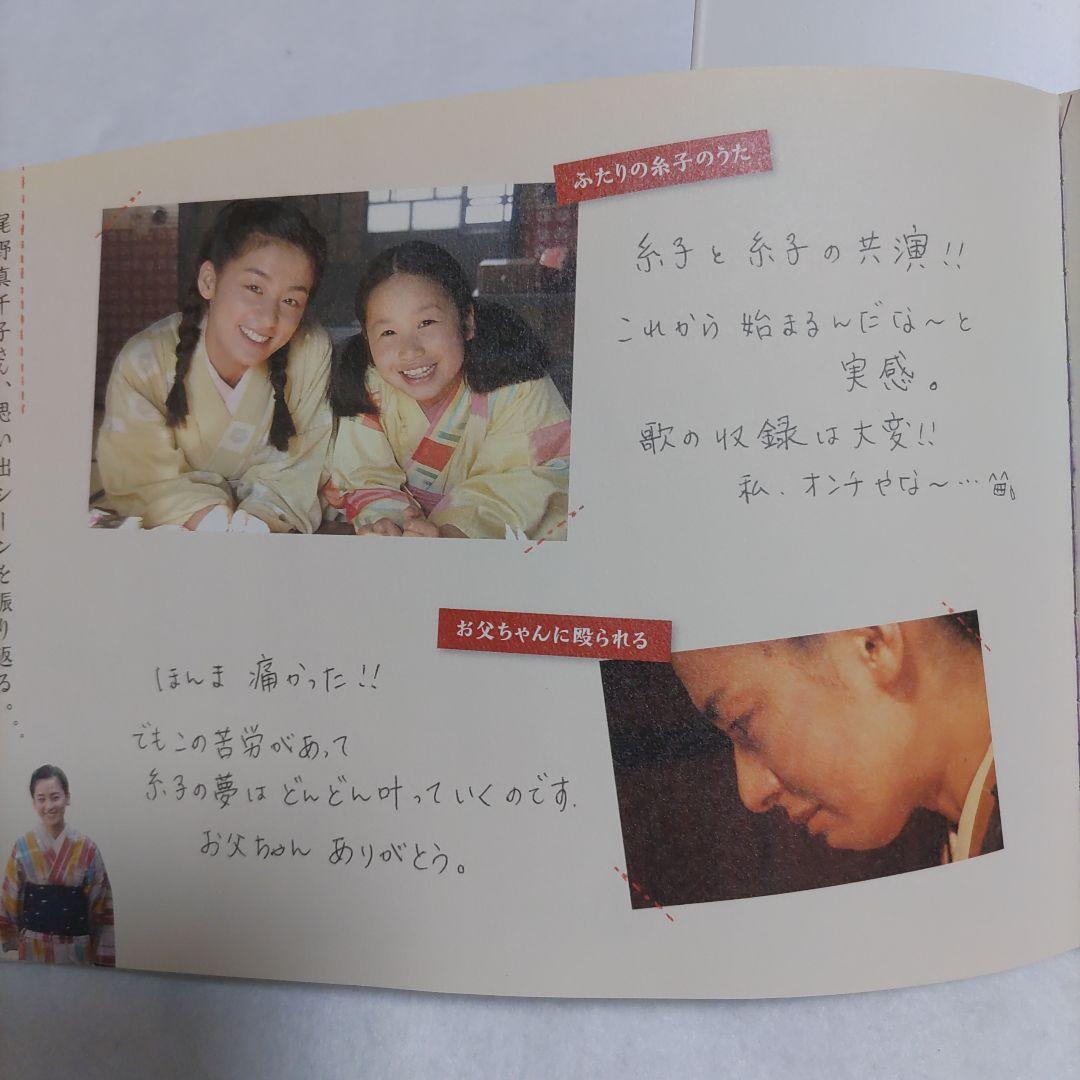 尾野真千子さん、思い出シーンを振り返る。。。
ふたりの糸子のうた
糸子と糸子の共演!!
これから始まるんだな〜と
実感。
歌の収録は大変!!
私、オンチやな〜…
お父ちゃんに殴られる
ほんま 痛かった!!
でもこの苦労があって
糸子の夢はどんどん叶っていくのです.
お父ちゃん ありがとう。